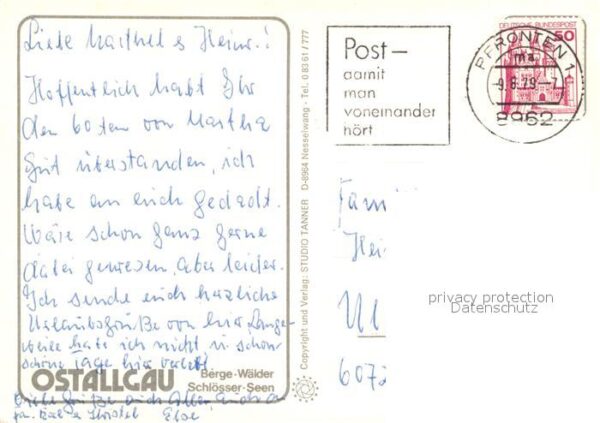 Liebe Marthel & Heinr.!
Hoffentlich habt Ihr
den 60ten von Martha
gut überstanden, ich
habe an euch gedacht.
Wäre schon ganz gerne
dabei gewesen, aber leider.
Ich sende euch herzliche
Urlaubsgrüße von hier. Lange-
weile habe ich nicht
schöne Tage hier
OSTALLGÄU
Berge-Wälder
Schlösser-Seen
Viele Grüße auch
Else
Copyright und Verlag: STUDIO TANNER D-8964 Nesselwang - Tel. 0 83 61 / 777
Post–
damit
man
voneinander
hört
DEUTSCHE BUNDESPOST
50
PFRONTEN 1
ma
-9.8.79-7
8962
Fam
Hei
Ul
607
privacy protection
Datenschutz